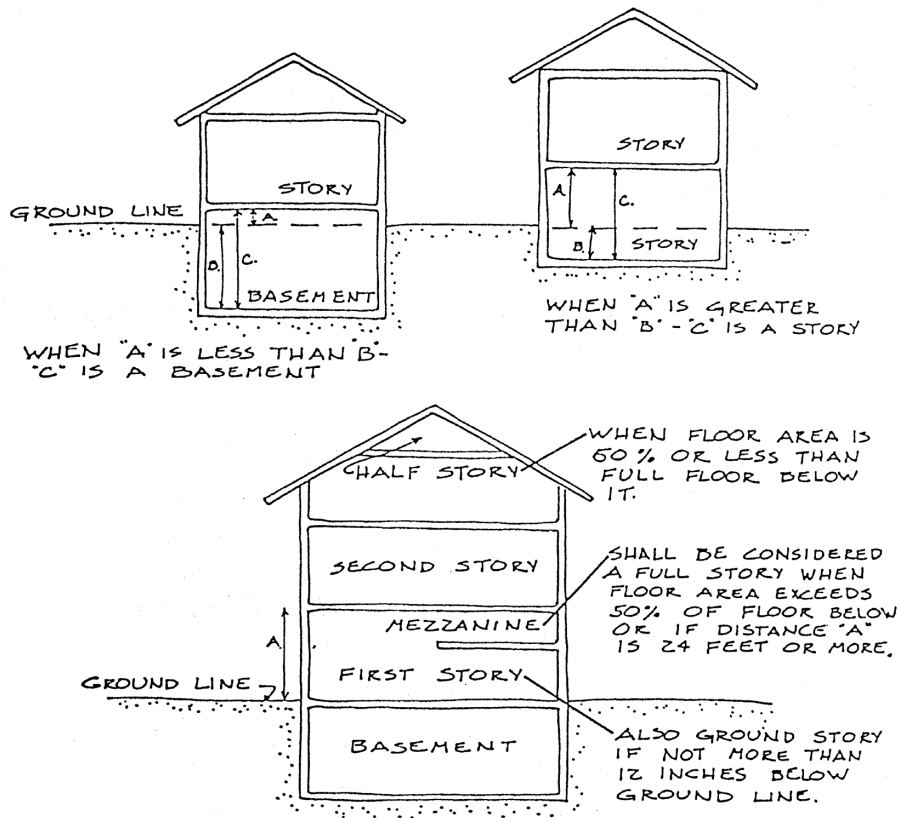 STORY
GROUND LINE
A.
B.
C.
BASEMENT
WHEN "A" IS LESS THAN "B"-
"C" IS A BASEMENT
STORY
A.
C.
B.
STORY
WHEN "A" IS GREATER
THAN "B" - "C" IS A STORY
HALF STORY
WHEN FLOOR AREA IS
50% OR LESS THAN
FULL FLOOR BELOW
IT.
SECOND STORY
MEZZANINE
SHALL BE CONSIDERED
A FULL STORY WHEN
FLOOR AREA EXCEEDS
50% OF FLOOR BELOW
OR IF DISTANCE "A"
IS 24 FEET OR MORE.
A
FIRST STORY
GROUND LINE
ALSO GROUND STORY
IF NOT MORE THAN
12 INCHES BELOW
GROUND LINE.
BASEMENT